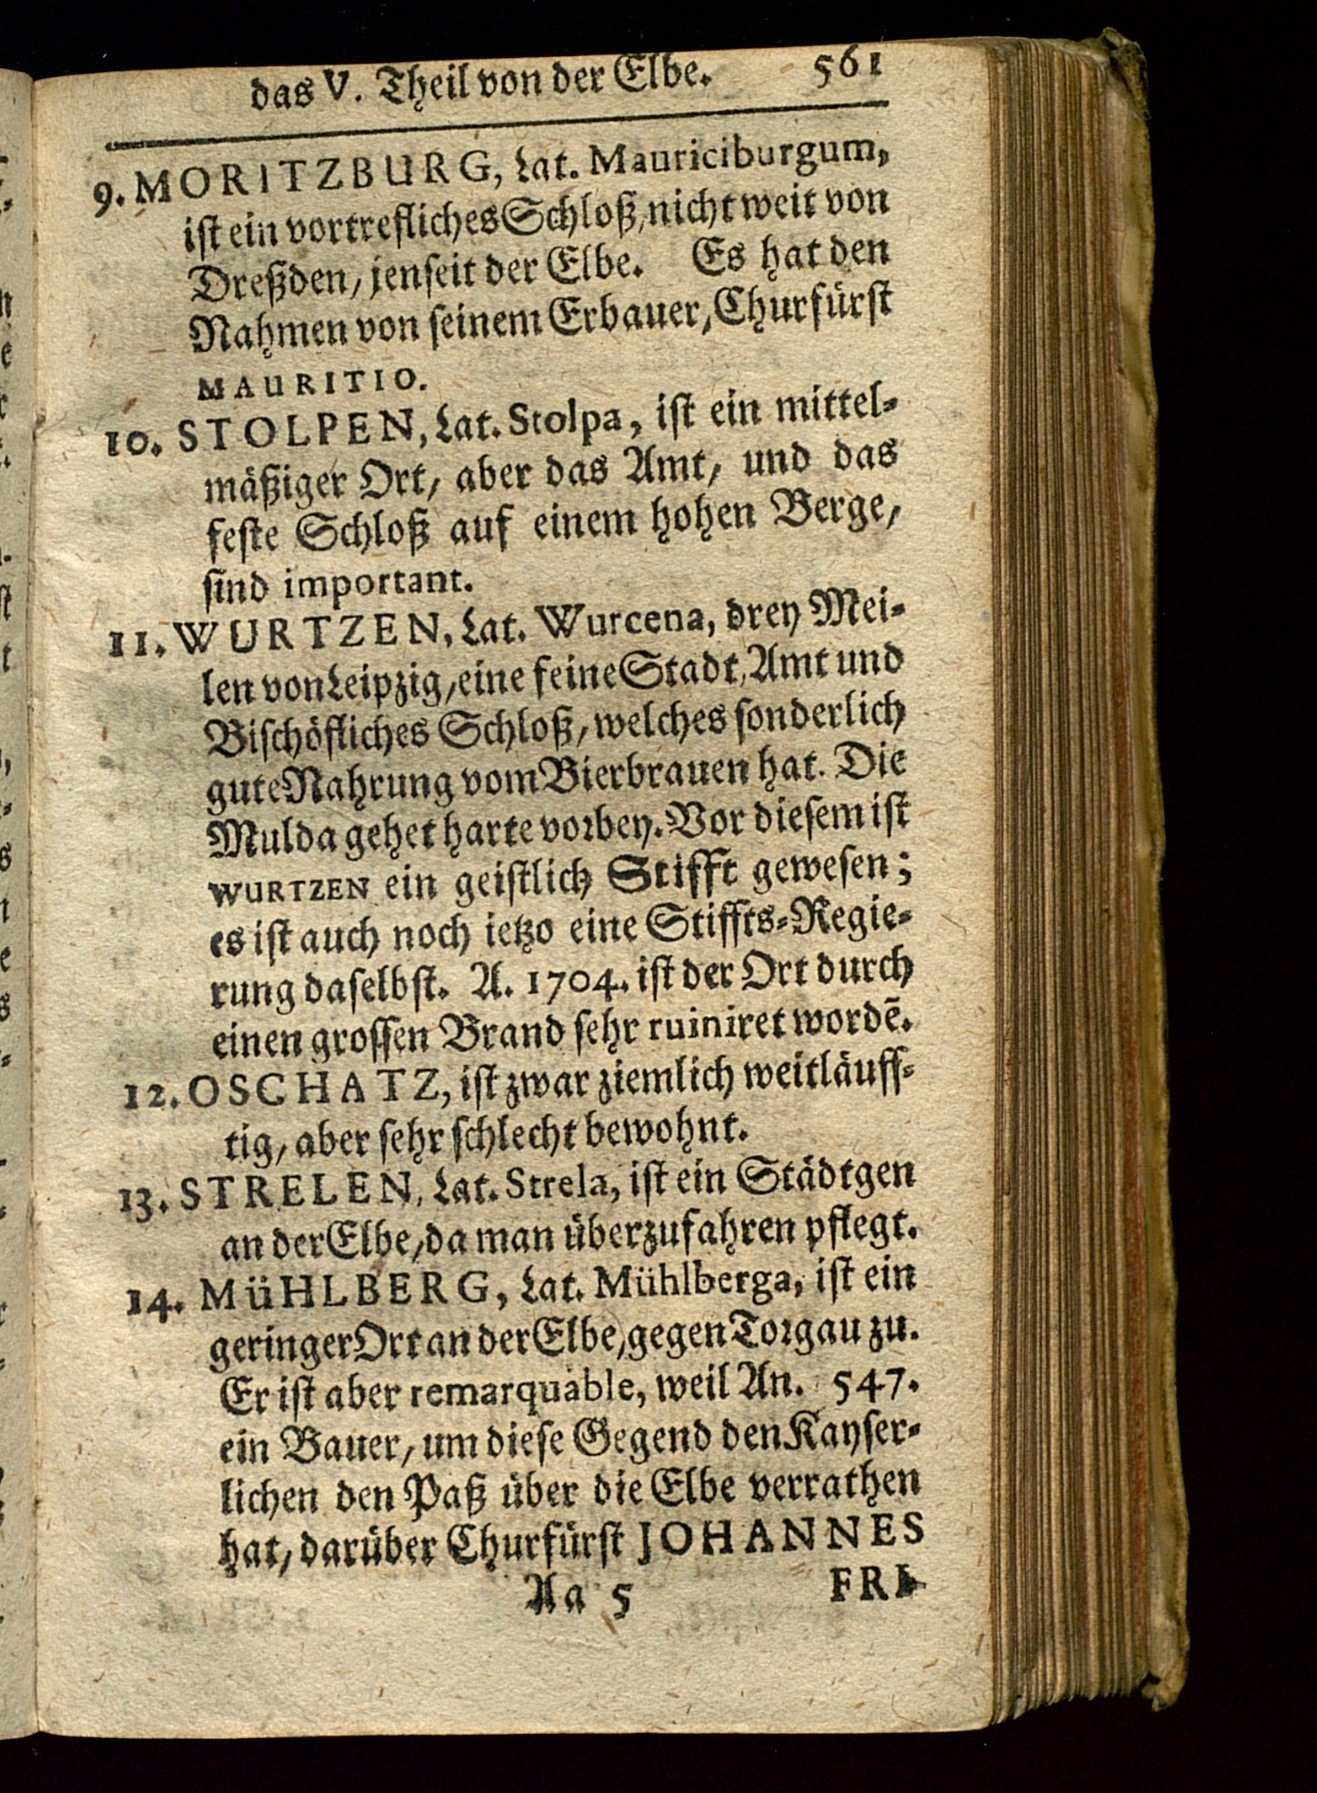 das V. Theil von der Elbe. 561
9. MORITZBURG, Lat. Mauriciburgum,
ist ein vortrefliches Schloß, nicht weit von
Dreßden, jenseit der Elbe. Es hat den
Nahmen von seinem Erbauer, Churfürst
MAURITIO.
10. STOLPEN, Lat. Stolpa, ist ein mittel-
mäßiger Ort, aber das Amt, und das
feste Schloß auf einem hohen Berge,
sind important.
11. WURTZEN, Lat. Wurcena, drey Mei-
len von Leipzig, eine feine Stadt, Amt und
Bischöfliches Schloß, welches sonderlich
gute Nahrung vom Bierbrauen hat. Die
Mulda gehet harte vorbey. Vor diesem ist
WURTZEN ein geistlich Stifft gewesen;
es ist auch noch ietzo eine Stiffts-Regie-
rung daselbst. A. 1704. ist der Ort durch
einen grossen Brand sehr ruiniret wordẽ.
12. OSCHATZ, ist zwar ziemlich weitläuff-
tig, aber sehr schlecht bewohnt.
13. STRELEN, Lat. Strela, ist ein Städtgen
an der Elbe, da man überzufahren pflegt.
14. MüHLBERG, Lat. Mühlberga, ist ein
geringer Ort an der Elbe, gegen Torgau zu.
Er ist aber remarquable, weil An. 547.
ein Bauer, um diese Gegend den Kayser-
lichen den Paß über die Elbe verrathen
hat, darüber Churfürst JOHANNES
Aa 5 FRI-